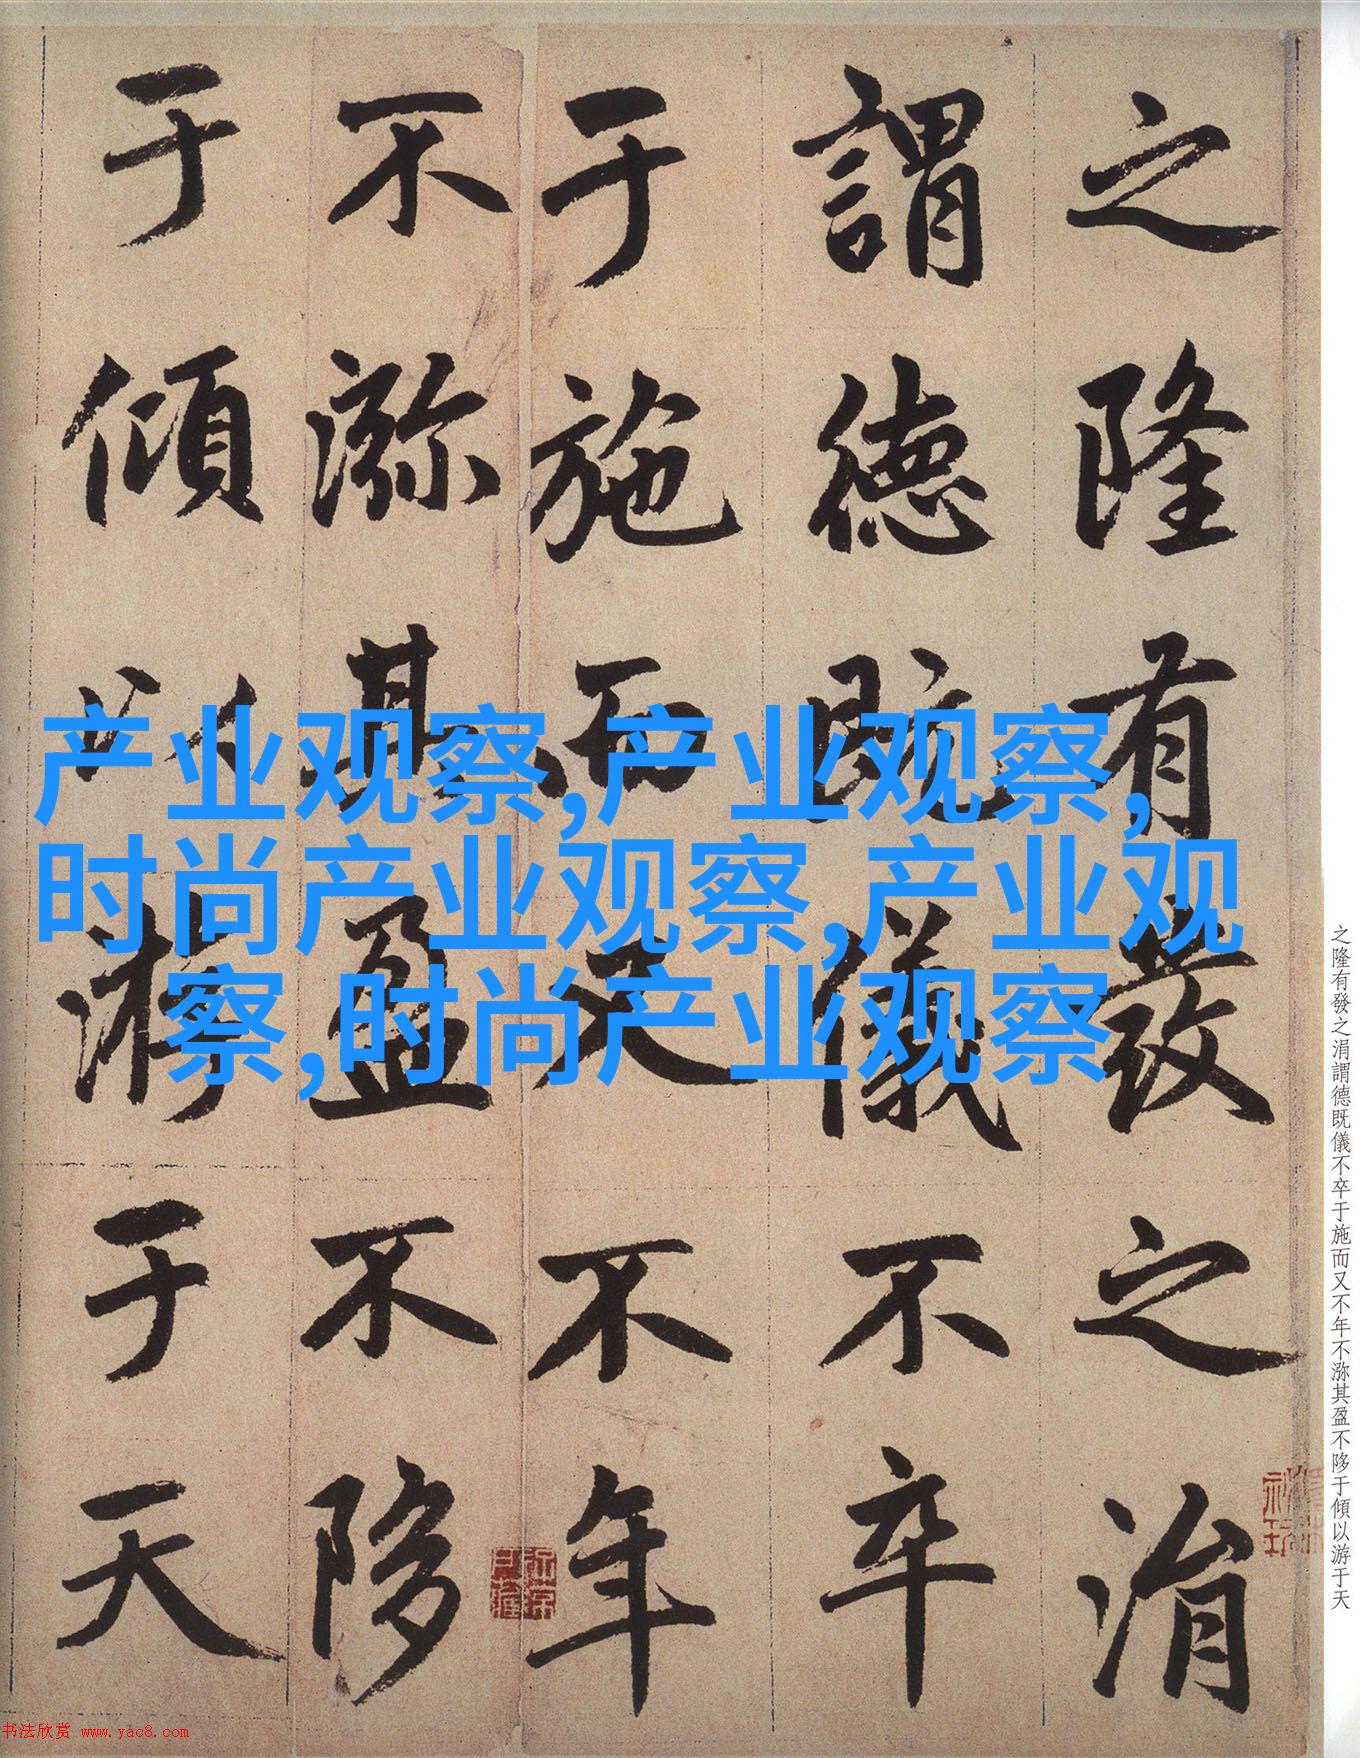 之隆有發之涓
謂德既儀不卒
于施而又不年
不㳽其盈不陊
于傾以游于天
产业观察,产业观察,
时尚产业观察,产业观
察,时尚产业观察
之隆有發之涓謂德既儀不卒于施而又不年不㳽其盈不陊于傾以游于天
书法欣赏 www.yac8.com